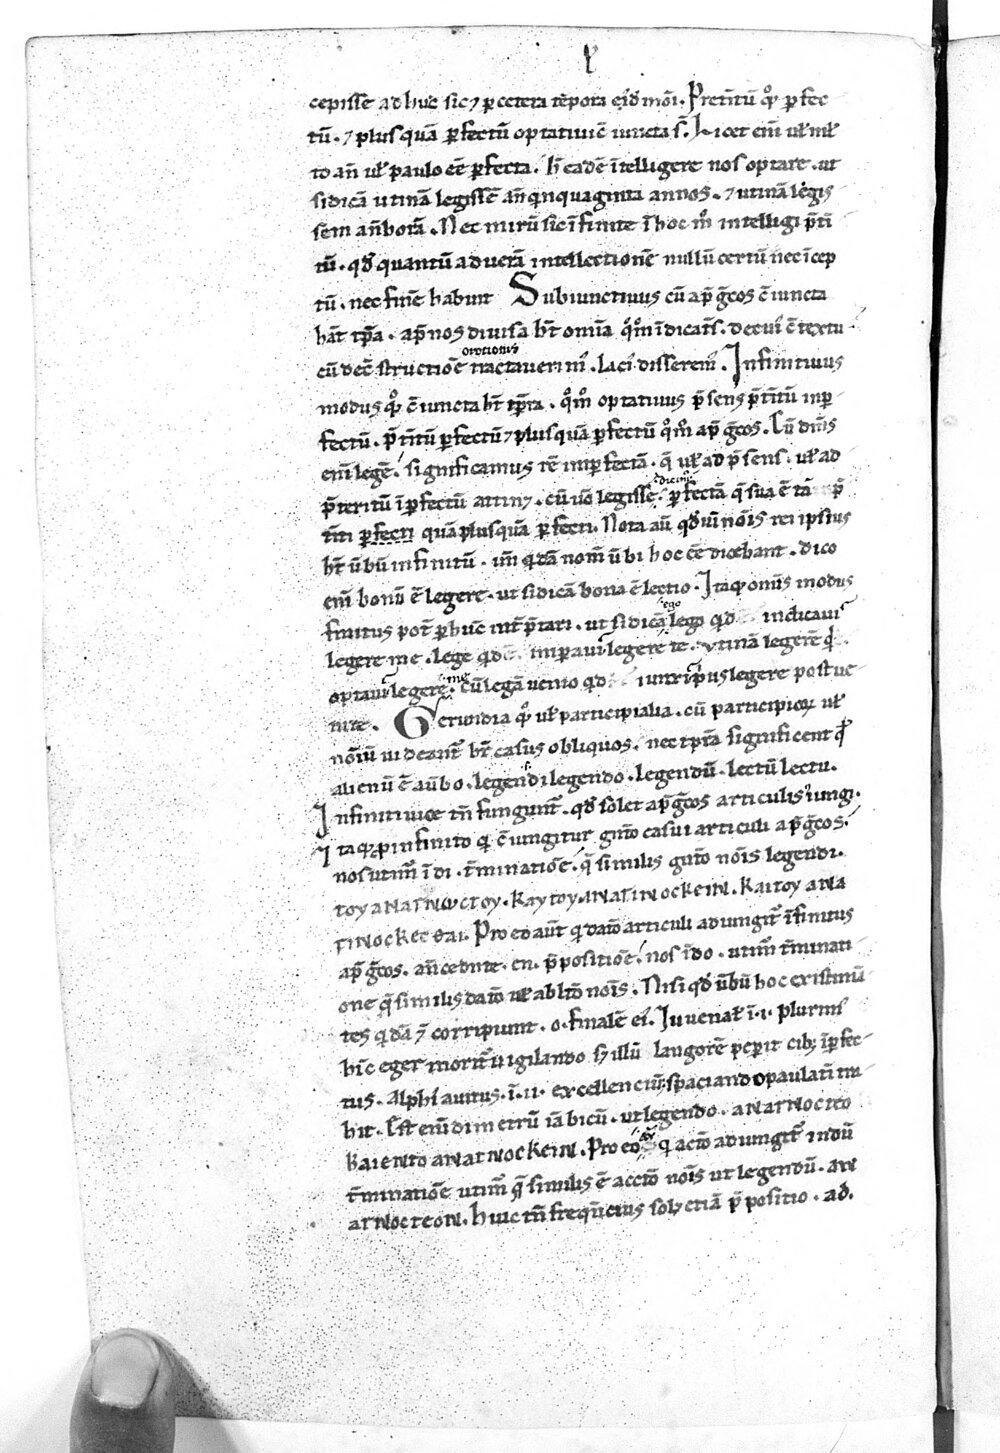 cepisse adhuc sic ⁊ p cetera tēpora eid̄ moī. Pretitū qͦ pfec
tū. ⁊ plusquā pfectū optatiui c̄iuncta s̄. Licet eni uł mł
to añ uł paulo eē pfecta. h̄ eadē ītelligere nos optare. ut
sidicā utinā legissē añ quinquaginta annos. ⁊ utinā legis
sem añ horā. Nec mirū sic īfinite ī hoc m̊ intelligi p̄ti
tū. qd̄ quantū ad uerā intellectionē nullū certū nec īcep
tū. nec finē habunt Subiunctiuus cū ap̄ ḡcos c̄iuncta
hāt tp̄a. ap̄ nos diuisa hn̄t omīa qm̊ īdicatī. de cui c̄textu
cū de c̄structiōe orationis tractauerim. laci disserem. Infinitiuus
modus qͦ c̄iuncta ht̄ tp̄ra. qm̊ optatiuus p̄sens p̄titū inp
fectū. p̄titū pfectū ⁊ plusquā pfectū qm̊ ap̄ ḡcos. Cū dicīs
eni legē. significamus rē inpfectā. q̄ uł ad p̄sens. uł ad
p̄teritū īpfectū attin⁊. cū ūo legisse. dicim pfectā q̄ sua ē tā p̄
titi pfecti quā plusquā pfecti. Nota aū qd̄ uī nōis rei ipsius
ht̄ ūbū infinitū. un̄ qdā nom̄ ūbi hoc eē dicebant. dico
eni bonū ē legere. ut sidicā bona ē lectio. Itaq omīs modus
finitus pot̄ p huc int̄p̄tari. ut sidicā ego lego qd indicaui
legere me. lege qd impaui legere te. utinā legerē qd
optaui legere me. cū legā uenio qd iuuri p̄us legere post ue
nire. Gerundia qͦ uł participialia. cū participioꝝ uł
nōiū uideant̄ hr̄e casus obliquos. nec tp̄ra significent qd̄
alienū ē a ūbo. legendi legendo. legendū. lectū lectu.
Infinitiuoꝝ tn̄ fungunt̄. qd̄ solet ap̄ ḡcos articulis iungi.
Itaq p infinito qi c̄iungitur gnīto casui articuli ap̄ ḡcos.
nos utim̄ ī di. t̄minatiōe. q̄ similis gnīto nōis legendi.
τογ αναγνωστογ. καγ τογ αναγινοςκειν. και τογ ανα
γινοςκεςθαι. Pro eo aūt qi datiō articuli adiungit̄ īfinitus
ap̄ ḡcos. añcedente. en. p̄positiōe. nos ī do. utim̄ t̄minati
one q̄ similis datiō uł ablatō nōis. Nisi qd̄ ūbū hoc existimā
tes qdā ⁊ corripiunt. o. finalē ei. Iuuenał ī. i. plurimī
hīc eger moritī uigilando s⁊ illū languorē pepit cib īpfec
tus. Alphī auitus. ī. ii. excellenciū. spaciando paulatī tra
hit. Est eni dimetrū iābicū. ut legendo. αναγνοςτεο
και εντο αναγνοςκειν. Pro eo qi actō adiungit̄ in dū
t̄minatiōe utim̄ q̄ similis ē acctō nōis ut legendū. αν
αγνοςτεον. huic tn̄ frequēcius sol⁊ etiā p̄positio. ad.